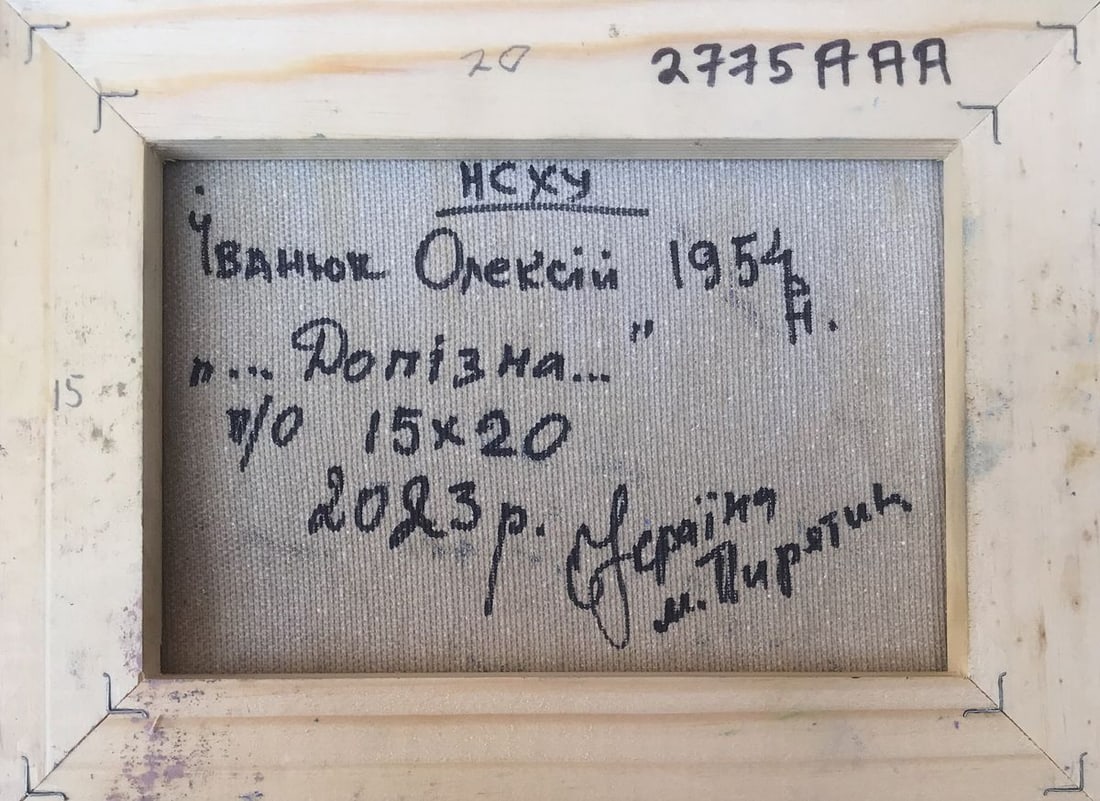 20 2775ААА
НСХУ
Іванюк Олексій 1954 р.н.
"... Допізна..."
15
п/о 15х20
2023 р. Україна
м. Пирятин